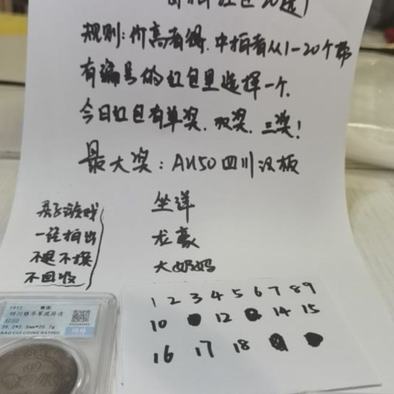 红包20选1
规则:价高者得,中拍者从1-20个带
有编号的红包里选择一个,
今日红包有单奖,双奖,三奖!
最大奖:AU50四川汉板
亲子游戏
一经拍出
不退不换
不回收
坐洋
龙毫
大奶妈
1 2 3 4 5 6 7 8 9
10 12 14 15
16 17 18
1912